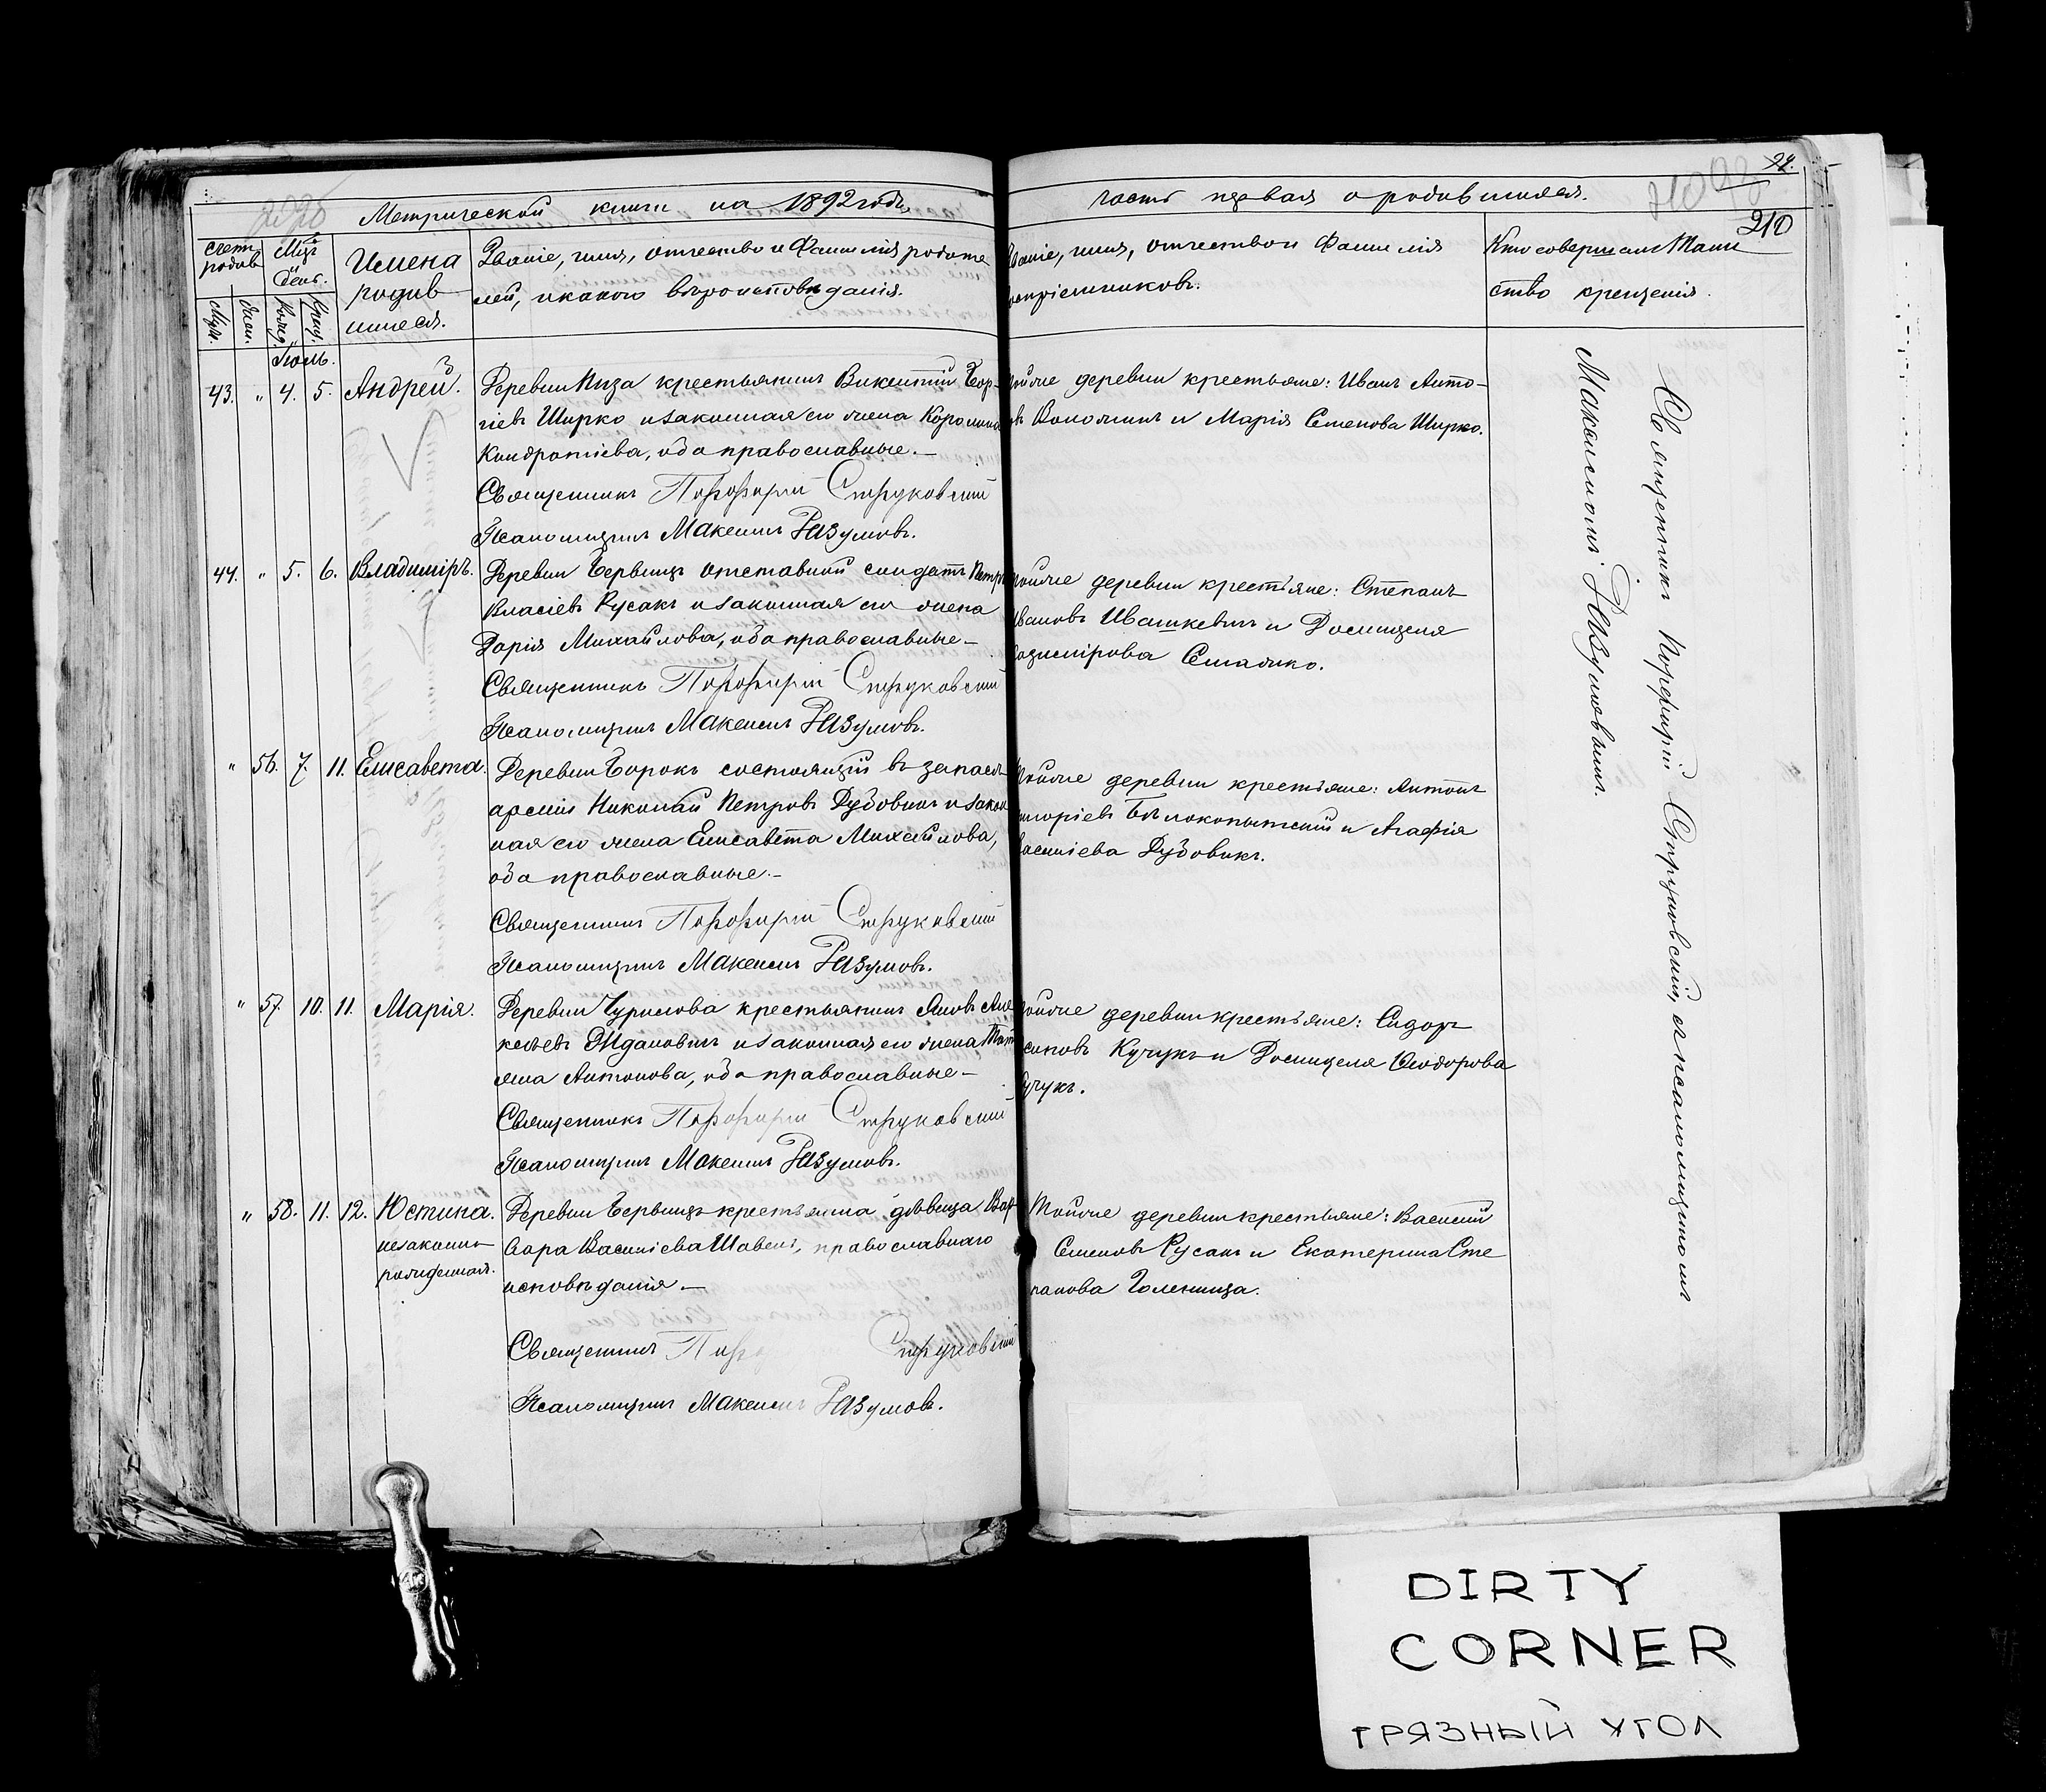 Метрической книги на 1892 годъ,
часть первая о родившихся.
29.
210
Счетъ родив.
Мцъ и день.
Имена родившихся.
Званіе, имя, отчество и фамилія родителей, и какого вѣроисповѣданія.
Званіе, имя, отчество и фамилія
воспріемниковъ.
Кто совершалъ Таин
ство крещенія.
Муж.
Жен.
Рожд.
Крещ.
Іюль.
43. " 4. 5. Андрей.
Деревни Низа крестьянинъ Викентій
Ширко и законная его жена
Кондратіева, оба православные.—
Священникъ Порфирій Струковскій
Псаломщикъ Максимъ Разумовъ.
тойже деревни крестьяне: Иванъ Анто-
и Марія Семенова Ширко.
44. " 5. 6. Владиміръ.
Деревни отставной солдатъ Петръ
Власіевъ Русакъ и законная его жена
Дарія Михайлова, оба православные—
Священникъ Порфирій Струковскій
Псаломщикъ Максимъ Разумовъ.
тойже деревни крестьяне: Степанъ
Ивановъ Ивашкевичъ и Домицеля
" 56. 7. 11. Елисавета.
Деревни Борокъ состоящій въ запасѣ
арміи Николай Петровъ Дубовикъ и закон
ная его жена Елисавета Михайлова,
оба православные.—
Священникъ Порфирій Струковскій
Псаломщикъ Максимъ Разумовъ.
тойже деревни крестьяне: Антонъ
Бѣлокопытскій и Агафія
Василіева Дубовикъ.
" 57. 10. 11. Марія.
Деревни Чурилова крестьянинъ Яковъ Але
ксѣевъ Ждановичъ и законная его жена Тать
яна Антонова, оба православные—
Священникъ Порфирій Струковскій
Псаломщикъ Максимъ Разумовъ.
тойже деревни крестьяне: Сидоръ
Кучукъ и Домицеля Ѳеодорова
Кучукъ.
" 58. 11. 12. Юстина.
незаконно-
рожденная.
Деревни крестьянка дѣвица Вар
вара Василіева Шавель, православнаго
исповѣданія—
Священникъ Струковскій
Псаломщикъ Максимъ Разумовъ.
Тойже деревни крестьяне: Василій
Семеновъ Русакъ и Екатерина Сте
панова Голеница.
Священникъ Порфирій Струковскій, съ псаломщикомъ
Максимомъ Разумовымъ.
DIRTY
CORNER
ГРЯЗНЫЙ УГОЛ